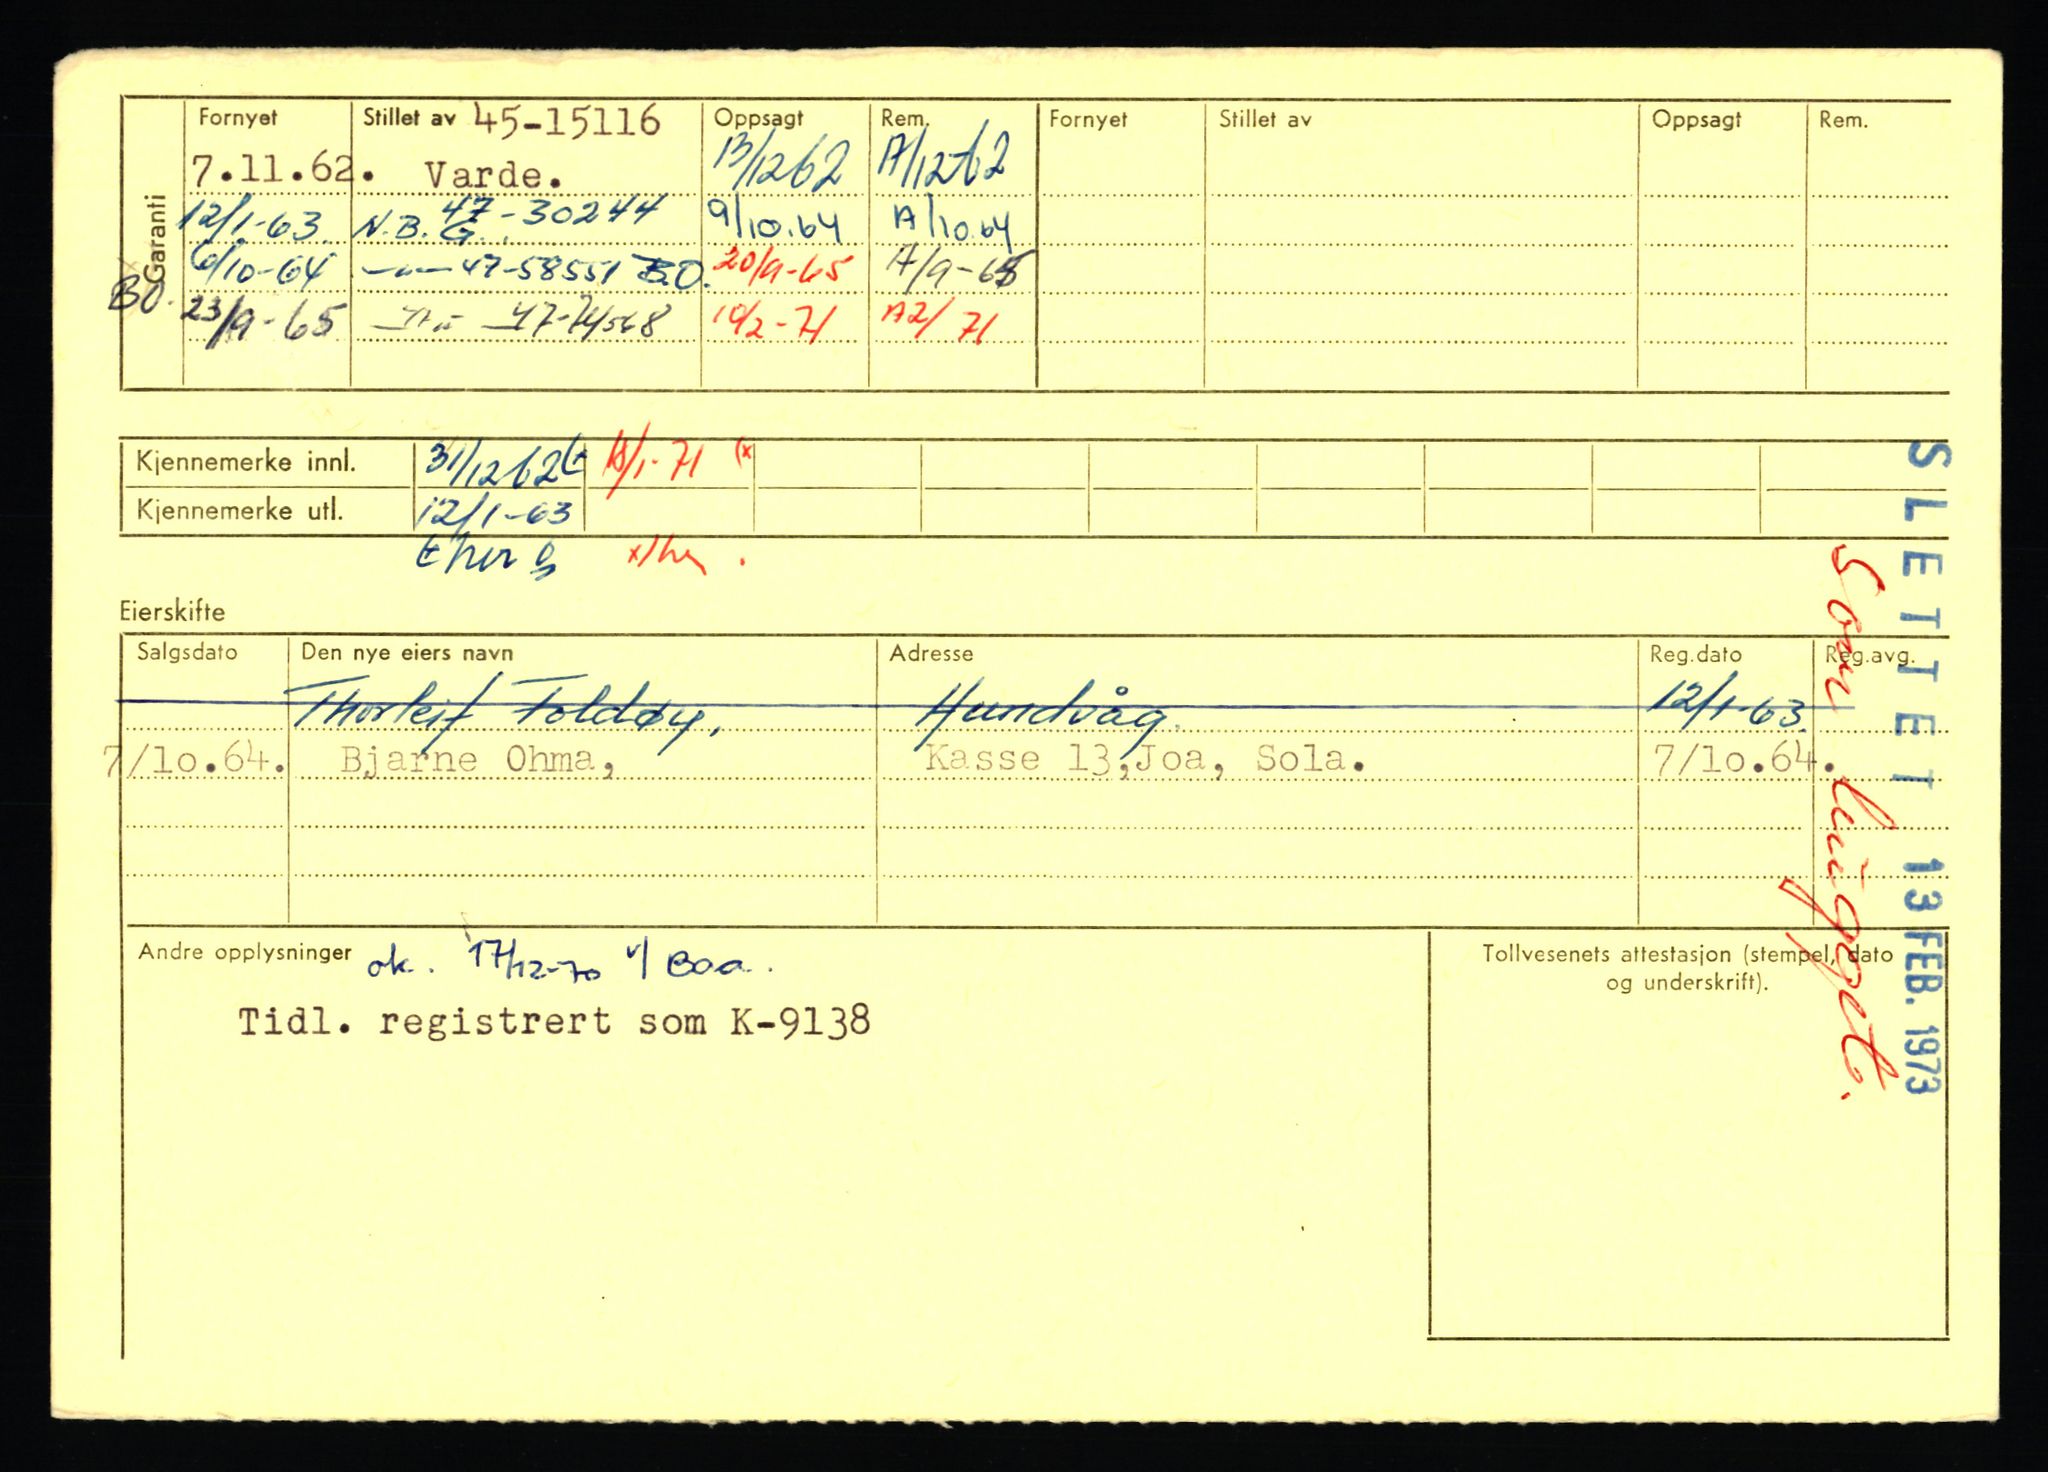 Garanti
Fornyet Stillet av 45-15116 Oppsagt Rem. Fornyet Stillet av Oppsagt Rem.
7.11.62. Varde. 13/12 62 A/12-62
12/1-63 N.B.G. 47-30244 9/10.64 A/10.64
6/10-64 —"— 47-58551 B.O. 20/9-65 A/9-65
BO. 23/9-65 —"— 47-74568 10/2-71 A2/71
Kjennemerke innl. 31/12 62 /1-71 (x
Kjennemerke utl. 12/1-63
Eierskifte
Salgsdato Den nye eiers navn Adresse Reg.dato Reg.avg.
Thorleif Foldøy, Hundvåg. 12/1-63.
7/10.64. Bjarne Ohma, Kasse 13, Joa, Sola. 7/10.64.
Andre opplysninger ok. 17/12-70 v/ Boa.
Tidl. registrert som K-9138
Tollvesenets attestasjon (stempel, dato
og underskrift).
SLETTET 13 FEB. 1973
Som hugget.